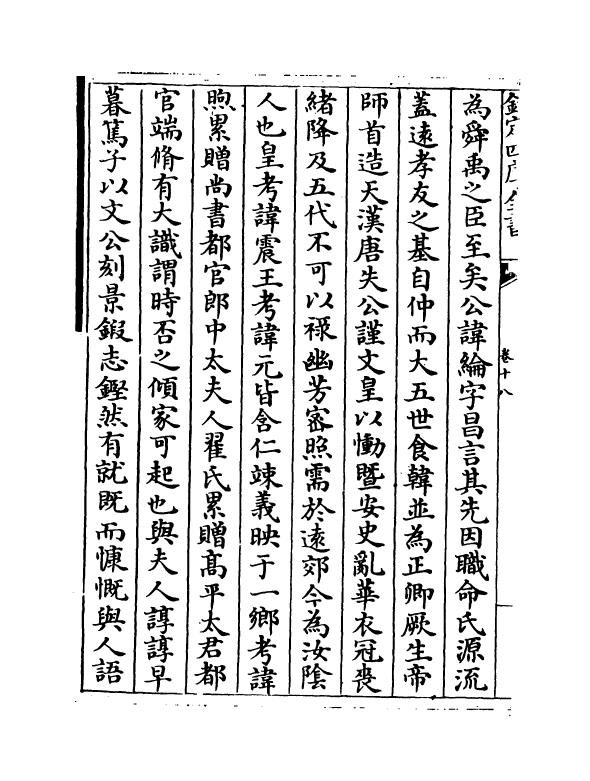 欽定四庫全書
卷十八
為舜禹之臣至矣公諱綸字昌言其先因職命氏源流
蓋遠孝友之基自仲而大五世食韓並為正卿厥生帝
師首造天漢唐失公謹文皇以慟暨安史亂華衣冠喪
緒降及五代不可以祿幽芳宻照需於逺郊今為汝隂
人也皇考諱震王考諱元皆含仁竦義映于一鄉考諱
煦累贈尚書都官郎中太夫人翟氏累贈髙平太君都
官端脩有大識謂時否之傾家可起也與夫人諄諄早
暮篤子以文公刻景鍜志鏗然有就既而慷慨與人語